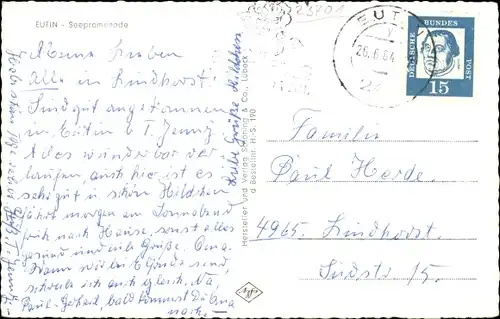 EUTIN - Seepromenade
Meine Lieben
Alle in Lindhorst!
Sind gut angekommen
in Eutin b T. Jenny
Alles wunderbar ver
laufen auch hier ist es
sehr gut u schön Hildchen
fährt morgen am Sonnabend
früh nach Hause, sonst alles
gesund und viele Grüße. Oma.
Wann wir bei E Gerda sind,
schreibe ich auch gleich. Na,
Paul-Gerhard, bald kommst Du Oma
nach.-
Liebe Grüße Hildchen
Hersteller und Verlag Schöning & Co., Lübeck
Bestellnr. H.-S. 190
23701
EUTIN
26.6.64
DEUTSCHE BUNDESPOST
15
Familie
Paul Herde.
4965. Lindhorst.
Südstr. 15.